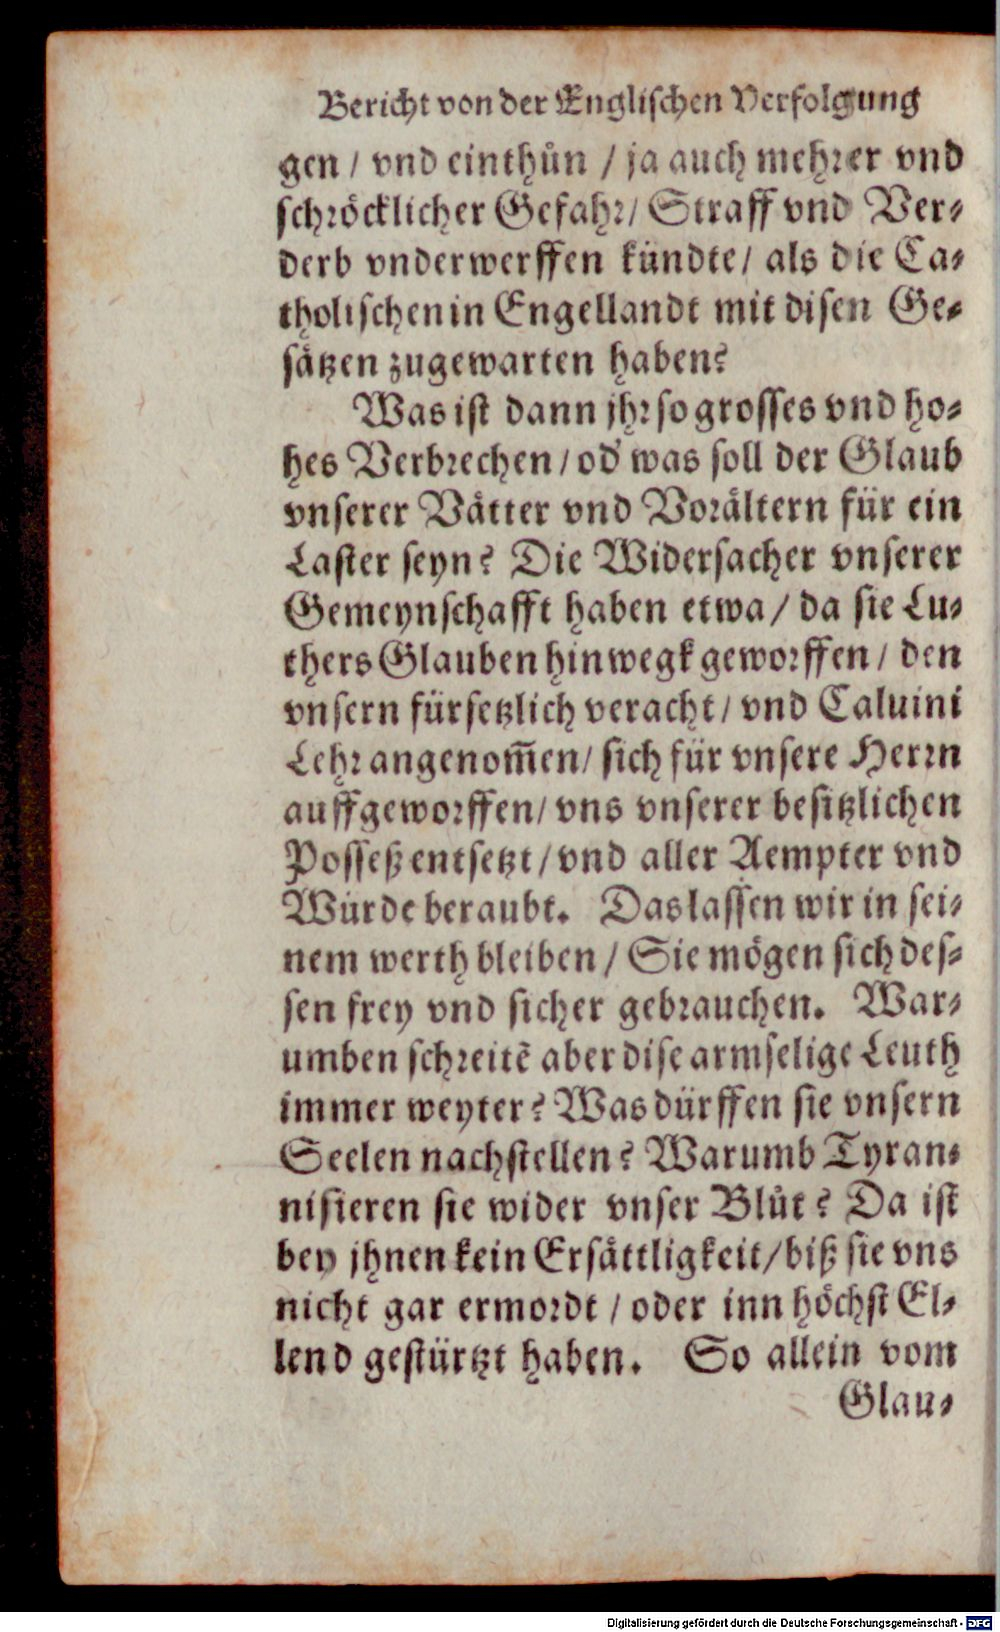 Bericht von der Englischen Verfolgung
gen / vnd einthůn / ja auch mehrer vnd
schröcklicher Gefahr / Straff vnd Ver-
derb vnderwerffen kündte / als die Ca-
tholischen in Engellandt mit disen Ge-
sätzen zugewarten haben?
Was ist dann jhr so grosses vnd ho-
hes Verbrechen / od' was soll der Glaub
vnserer Vätter vnd Vorältern für ein
Laster seyn? Die Widersacher vnserer
Gemeynschafft haben etwa / da sie Lu-
thers Glauben hinwegk geworffen / den
vnsern fürsetzlich veracht / vnd Caluini
Lehr angenom̃en / sich für vnsere Herrn
auffgeworffen / vns vnserer besitzlichen
Posseß entsetzt / vnd aller Aempter vnd
Würde beraubt. Das lassen wir in sei-
nem werth bleiben / Sie mögen sich des-
sen frey vnd sicher gebrauchen. War-
umben schreitẽ aber dise armselige Leuth
immer weyter? Was dürffen sie vnsern
Seelen nachstellen? Warumb Tyran-
nisieren sie wider vnser Blůt? Da ist
bey jhnen kein Ersättligkeit / biß sie vns
nicht gar ermordt / oder inn höchst El-
lend gestürtzt haben. So allein vom
Glau-
Digitalisierung gefördert durch die Deutsche Forschungsgemeinschaft - DFG